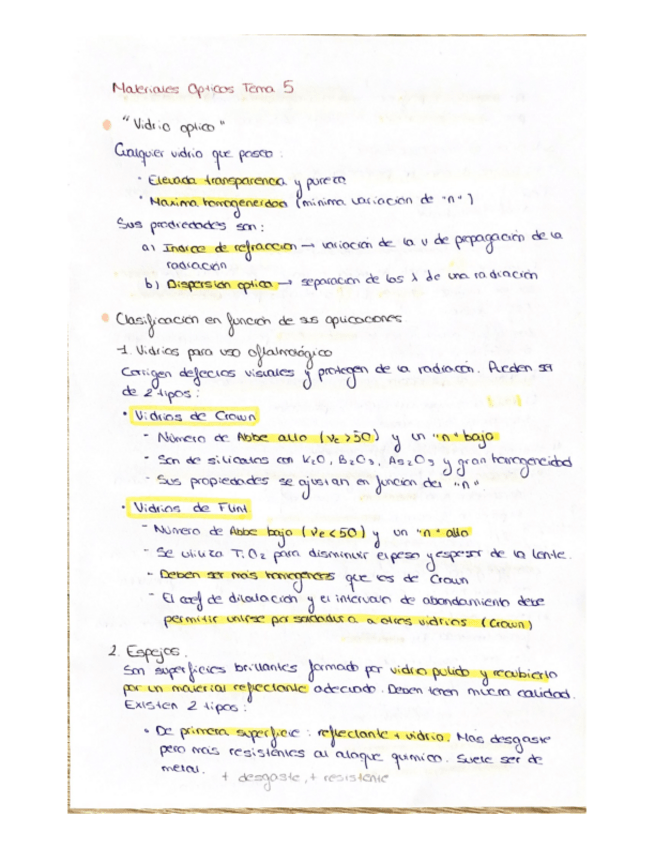 Materiales Opticos Tema 5
"Vidrio optico"
Cualquier vidrio que posea :
· Elevada transparencia y pureza
· Maxima homogeneidad (minima variacion de "n")
Sus propiedades son :
a) Indice de refraccion → variación de la v de propagación de la
radiación
b) Dispersion optica → separacion de las λ de una radiación
Clasificacion en función de sus aplicaciones
1. Vidrios para uso oftalmológico
Corrigen defectos visuales y protegen de la radiación. Pueden ser
de 2 tipos :
· Vidrios de Crown
- Número de Abbe alto (νe >50) y un "n" bajo
- Son de silicatos con K2O, B2O3, As2O3 y gran homogeneidad
- Sus propiedades se ajustan en función del "n"
· Vidrios de Flint
- Número de Abbe bajo (νe <50) y un "n" alto
- Se utiliza TiO2 para disminuir el peso y espesor de la lente.
- Deben ser más homogéneos que los de Crown
- El coef de dilatación y el intervalo de ablandamiento debe
permitir unirse por soldadura a otros vidrios (Crown)
2. Espejos.
Son superficies brillantes formado por vidrio pulido y recubierto
por un material reflectante adecuado. Deben tener mucha calidad.
Existen 2 tipos :
· De primera superficie : reflectante + vidrio. Mas desgaste
pero mas resistentes al ataque quimico. Suele ser de
metal.
+ desgaste, + resistente